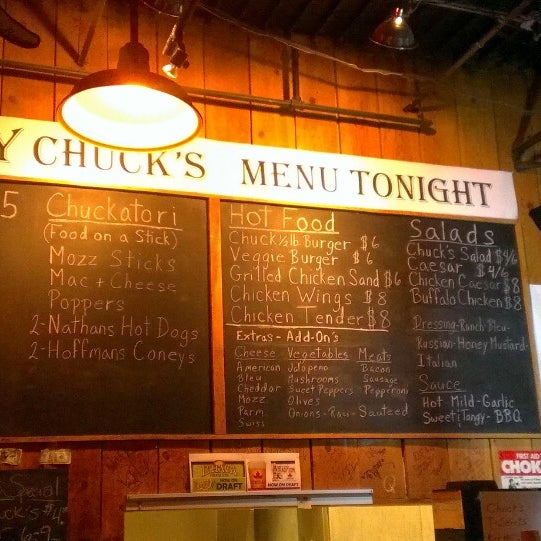 Y CHUCK'S MENU TONIGHT
5
Chuckatori
(Food on a Stick)
Mozz Sticks
Mac + Cheese
Poppers
2-Nathans Hot Dogs
2-Hoffmans Coneys
Hot Food
Chuck ½ lb Burger $6
Veggie Burger $6
Grilled Chicken Sand $6
Chicken Wings $8
Chicken Tender $8
Extras - Add-On's
Cheese Vegetables Meats
American Jalapeno Bacon
Bleu Mushrooms Sausage
Cheddar Sweet Peppers Pepperoni
Mozz Olives
Parm Onions-Raw-Sauteed
Swiss
Salads
Chuck's Salad $4/6
Caesar $4/6
Chicken Caesar $8
Buffalo Chicken $8
Dressing-Ranch Bleu-
Russian-Honey Mustard-
Italian
Sauce
Hot Mild-Garlic
Sweet i Tangy-BBQ
NOW ON DRAFT
NOW ON DRAFT
FIRST AID
CHOK
Chuck's